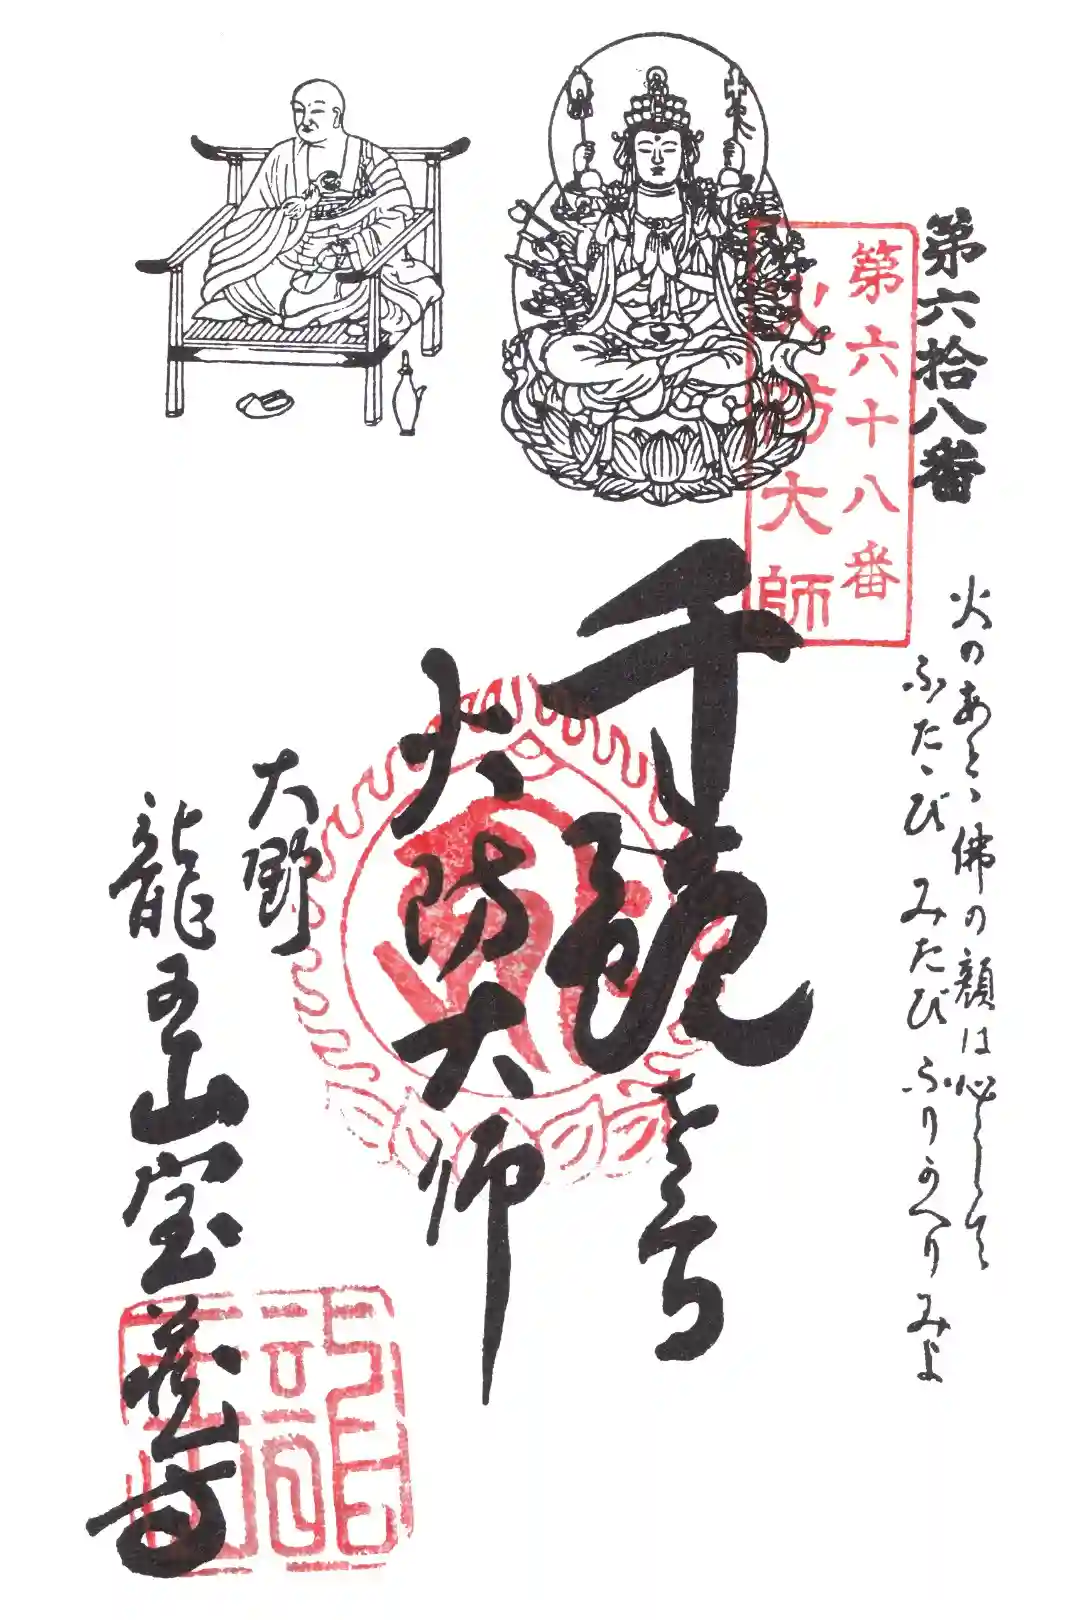 第六拾八番
第六十八番
火防大師
火のあとゝ佛の顔は心して
ふたゝび みたび ふりかへりみよ
千観音
火防大師
大野
龍王山宝蔵寺